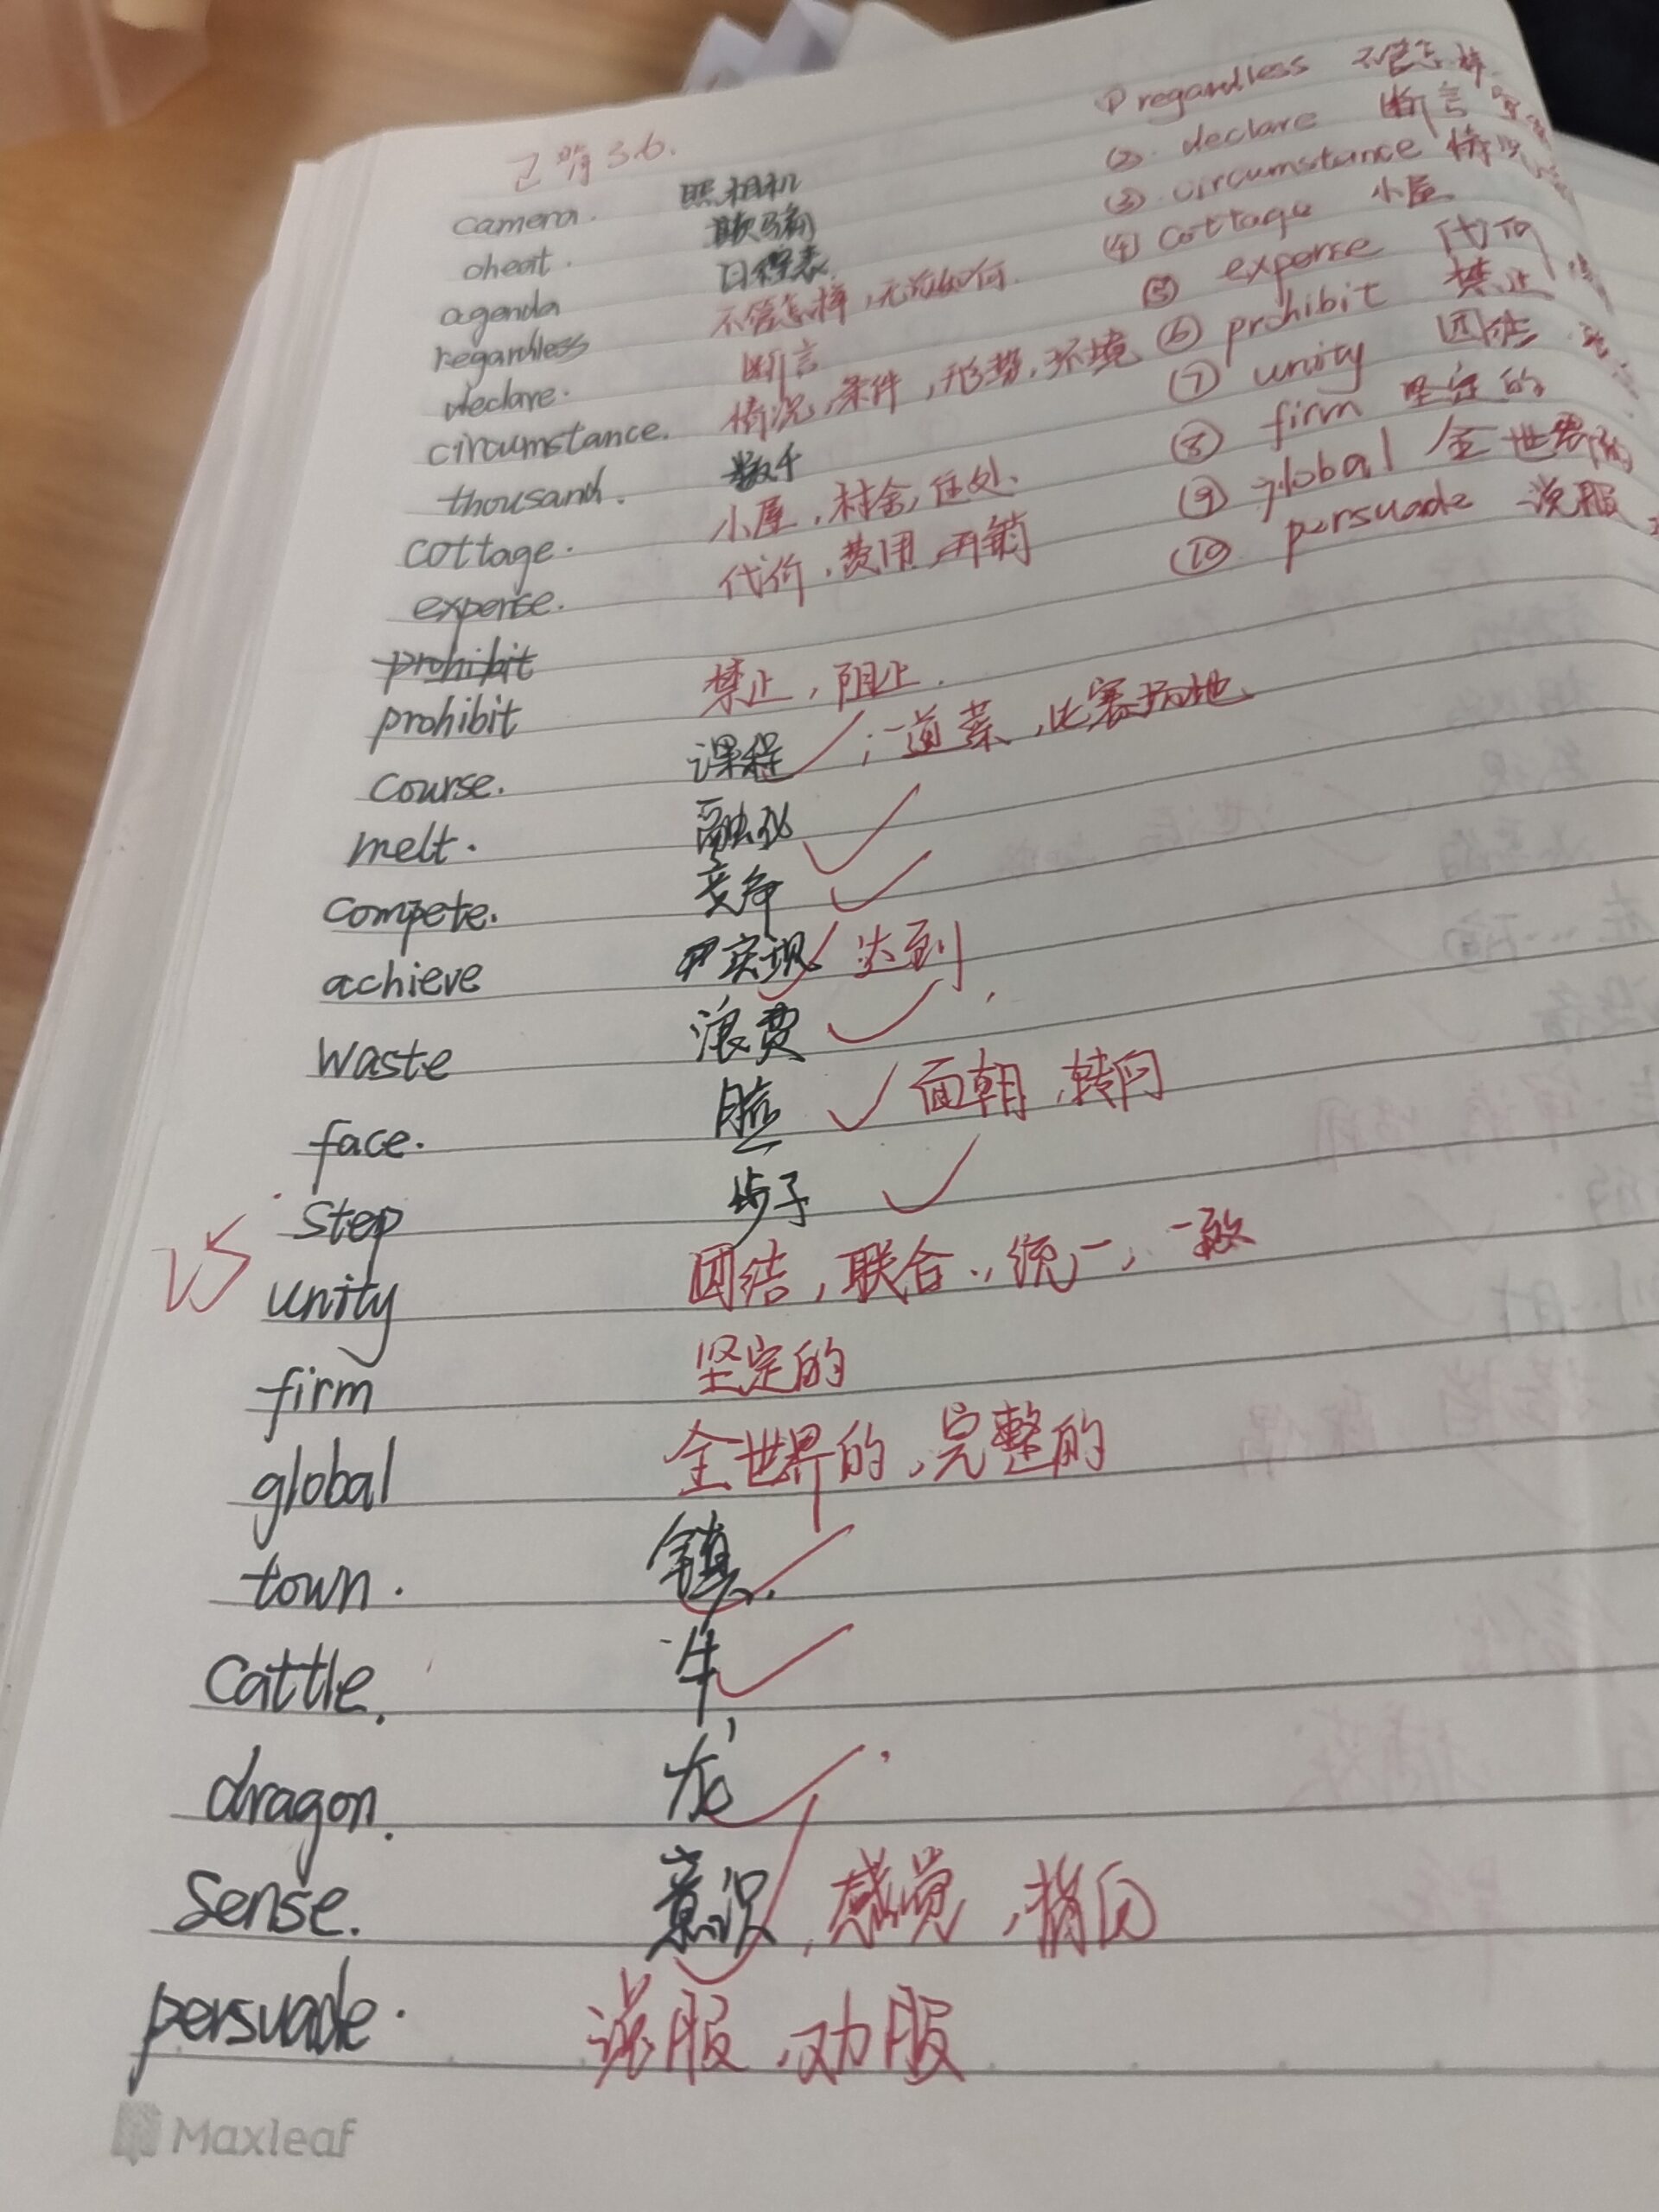 已背36.
camera. 照相机
cheat. 欺骗
agenda 日程表
regardless 不管怎样,无论如何.
declare. 断言
circumstance. 情况,条件,形势,环境
thousand. 数千
cottage. 小屋,村舍,住处.
expense. 代价,费用,开销
prohibit
prohibit 禁止,阻止.
course. 课程 ;一道菜,比赛场地
melt. 融化
compete. 竞争
achieve 实现 达到
waste 浪费
face. 脸 面朝,转向
step 步子
unity 团结,联合,统一,一致
firm 坚定的
global 全世界的,完整的
town. 镇.
cattle. 牛
dragon. 龙
sense. 意识,感觉,
persuade. 说服,劝服
① regardless 不管怎样
② declare 断言
③ circumstance 情况
④ cottage 小屋
⑤ expense 代价
⑥ prohibit 禁止
⑦ unity 团结
⑧ firm 坚定的
⑨ global 全世界的
⑩ persuade 说服
Maxleaf